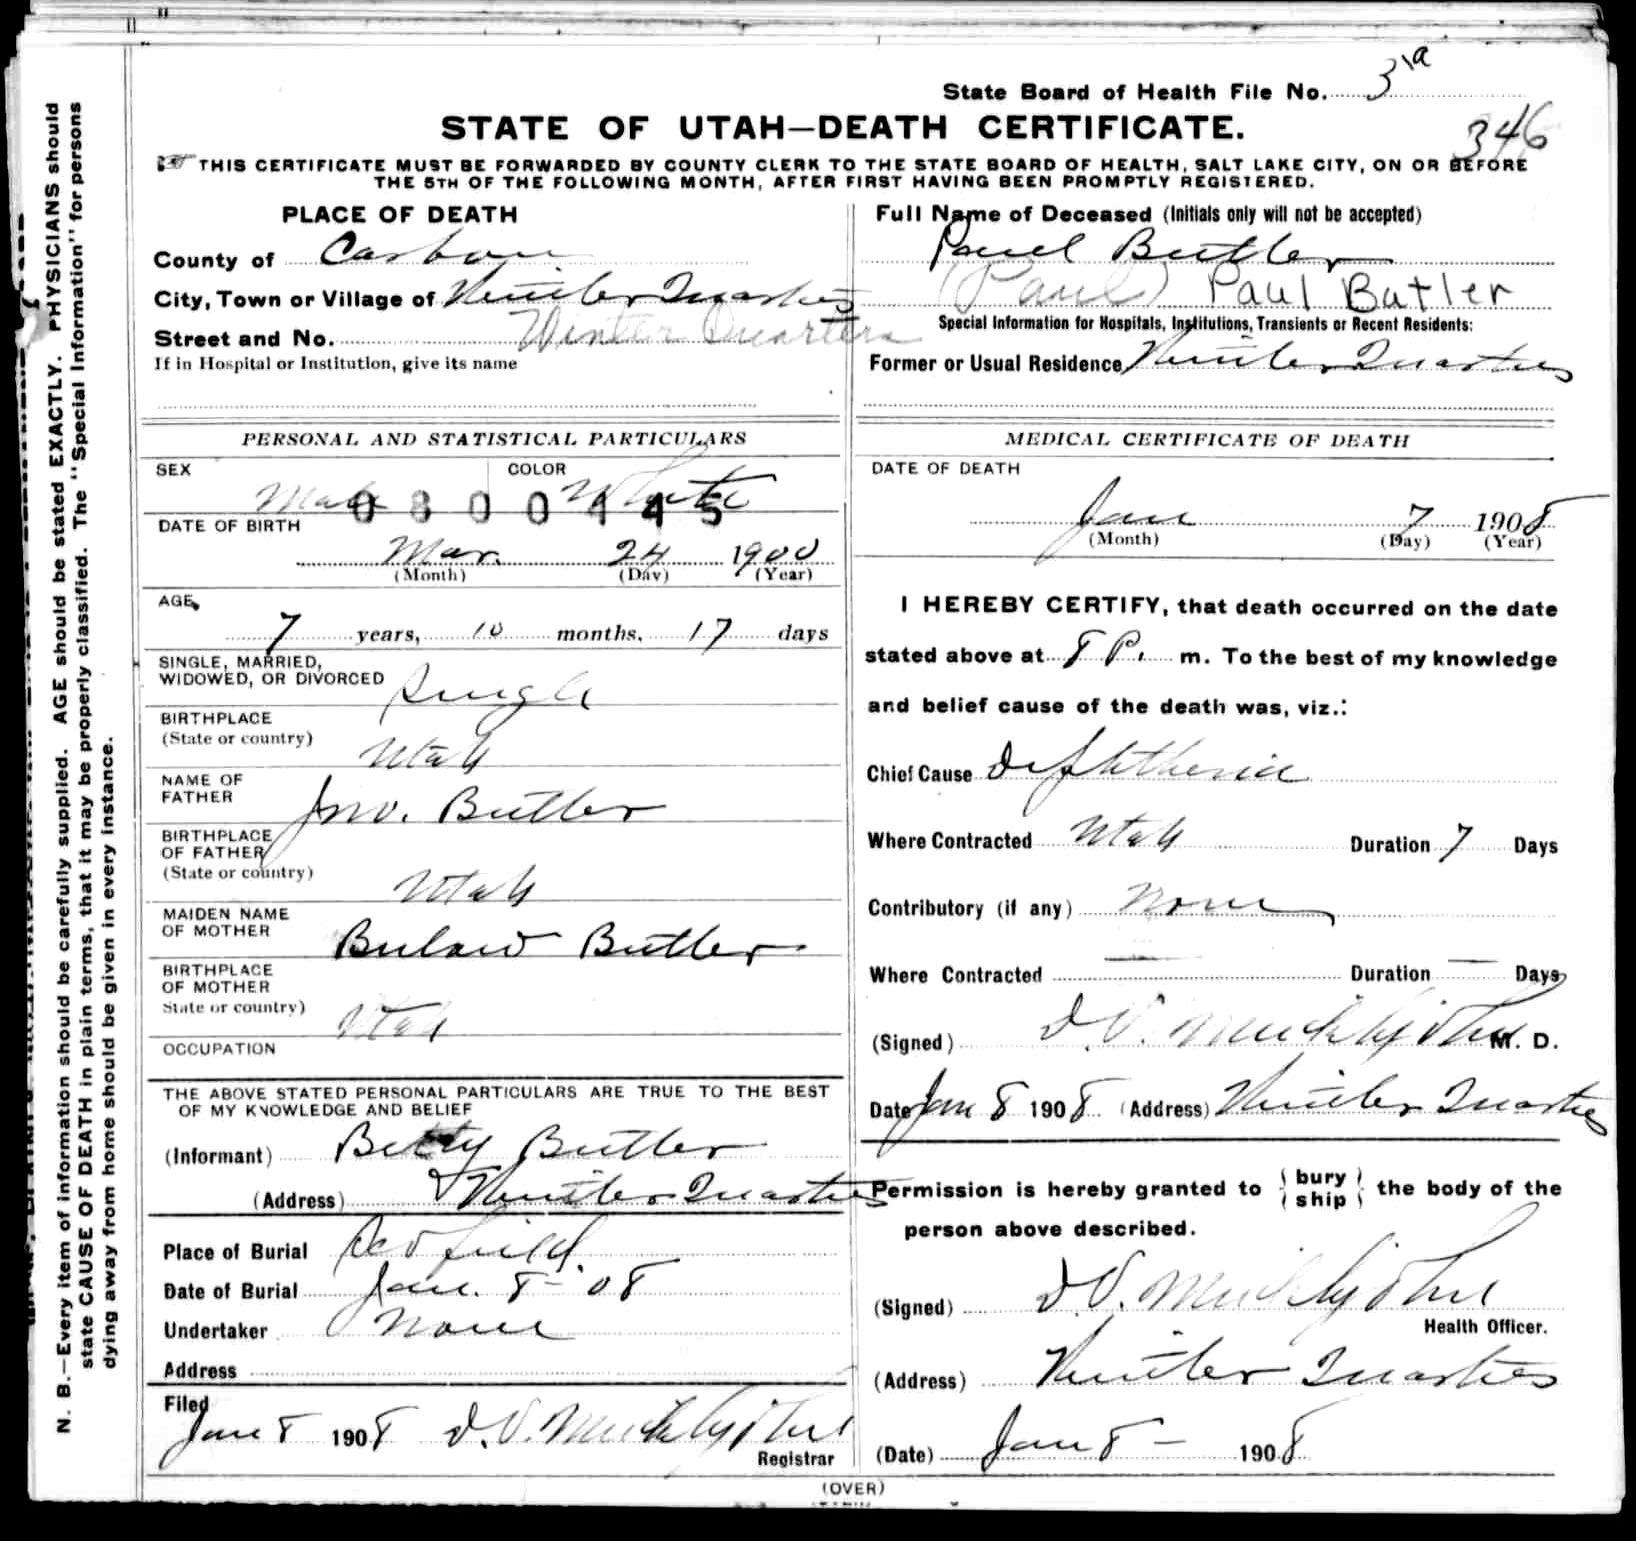 State Board of Health File No. 3 1a
346
STATE OF UTAH—DEATH CERTIFICATE.
THIS CERTIFICATE MUST BE FORWARDED BY COUNTY CLERK TO THE STATE BOARD OF HEALTH, SALT LAKE CITY, ON OR BEFORE
THE 5TH OF THE FOLLOWING MONTH, AFTER FIRST HAVING BEEN PROMPTLY REGISTERED.
PLACE OF DEATH
County of Carbon
City, Town or Village of Winter Quarters
Street and No. Winter Quarters
If in Hospital or Institution, give its name
Full Name of Deceased (Initials only will not be accepted)
Paul Butler
(Paul) Paul Butler
Special Information for Hospitals, Institutions, Transients or Recent Residents:
Former or Usual Residence Winter Quarters
PERSONAL AND STATISTICAL PARTICULARS
SEX COLOR
Male White
0800445
DATE OF BIRTH
Mar. 24 1900
(Month) (Day) (Year)
AGE
7 years, 10 months, 17 days
SINGLE, MARRIED,
WIDOWED, OR DIVORCED Single
BIRTHPLACE
(State or country) Utah
NAME OF
FATHER Jno. Butler
BIRTHPLACE
OF FATHER
(State or country) Utah
MAIDEN NAME
OF MOTHER Butler
BIRTHPLACE
OF MOTHER
State or country) Utah
OCCUPATION
THE ABOVE STATED PERSONAL PARTICULARS ARE TRUE TO THE BEST
OF MY KNOWLEDGE AND BELIEF
(Informant) Betty Butler
(Address) Winter Quarters
Place of Burial Scofield
Date of Burial Jan. 8-08
Undertaker None
Address
Filed
Jan 8 1908 D.V.
Registrar
MEDICAL CERTIFICATE OF DEATH
DATE OF DEATH
Jan 7 1908
(Month) (Day) (Year)
I HEREBY CERTIFY, that death occurred on the date
stated above at 8 P. m. To the best of my knowledge
and belief cause of the death was, viz.:
Chief Cause Diphtheria
Where Contracted Utah Duration 7 Days
Contributory (if any) None
Where Contracted — Duration — Days
(Signed) D.V. M. D.
Date Jan 8 1908 (Address) Winter Quarters
Permission is hereby granted to { bury ship } the body of the
person above described.
(Signed) D.V.
Health Officer.
(Address) Winter Quarters
(Date) Jan 8 – 1908
(OVER)
N. B.—Every item of information should be carefully supplied. AGE should be stated EXACTLY. PHYSICIANS should
state CAUSE OF DEATH in plain terms, that it may be properly classified. The "Special Information" for persons
dying away from home should be given in every instance.